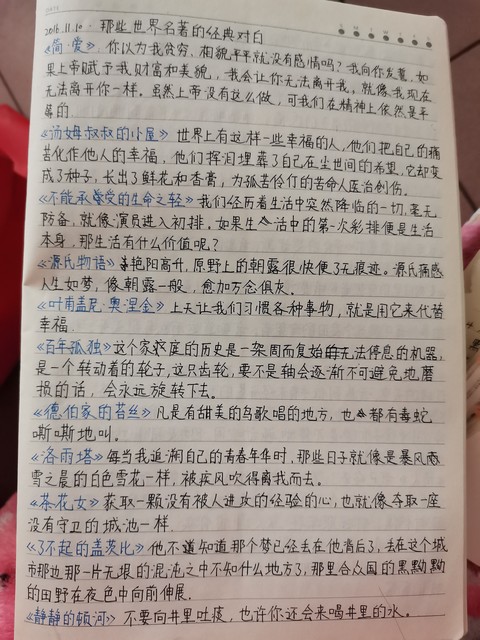 2016.11.10 · 那些世界名著的经典对白
《简·爱》你以为我贫穷、相貌平平就没有感情吗?我向你发誓,如
果上帝赋予我财富和美貌,我会让你无法离开我,就像我现在
无法离开你一样。虽然上帝没有这么做,可我们在精神上依然是平
等的
《汤姆叔叔的小屋》世界上有这样一些幸福的人,他们把自己的痛
苦化作他人的幸福,他们挥泪埋葬了自己在尘世间的希望,它却变
成了种子,长出了鲜花和香膏,为孤苦伶仃的苦命人医治创伤。
《不能承受的生命之轻》我们经历着生活中突然降临的一切,毫无
防备,就像演员进入初排。如果生活中的第一次彩排便是生活
本身,那生活有什么价值呢?
《源氏物语》艳阳高升,原野上的朝露很快便了无痕迹。源氏痛感
人生如梦,像朝露一般,愈加万念俱灰。
《叶甫盖尼·奥涅金》上天让我们习惯各种事物,就是用它来代替
幸福
《百年孤独》这个家庭的历史是一架周而复始的无法停息的机器,
是一个转动着的轮子,这只齿轮,要不是轴会逐渐不可避免地磨
损的话,会永远旋转下去。
《德伯家的苔丝》凡是有甜美的鸟歌唱的地方,也都有毒蛇
嘶嘶地叫。
《洛丽塔》每当我追溯自己的青春年华时,那些日子就像是暴风
雪之晨的白色雪花一样,被疾风吹得离我而去。
《茶花女》获取一颗没有被人进攻的经验的心,也就像夺取一座
没有守卫的城池一样.
《了不起的盖茨比》他不知道那个梦已经丢在他背后了,丢在这个城
市那边那一片无垠的混沌之中不知什么地方了,那里合众国的黑黝黝
的田野在夜色中向前伸展.
《静静的顿河》不要向井里吐痰,也许你还会来喝井里的水。